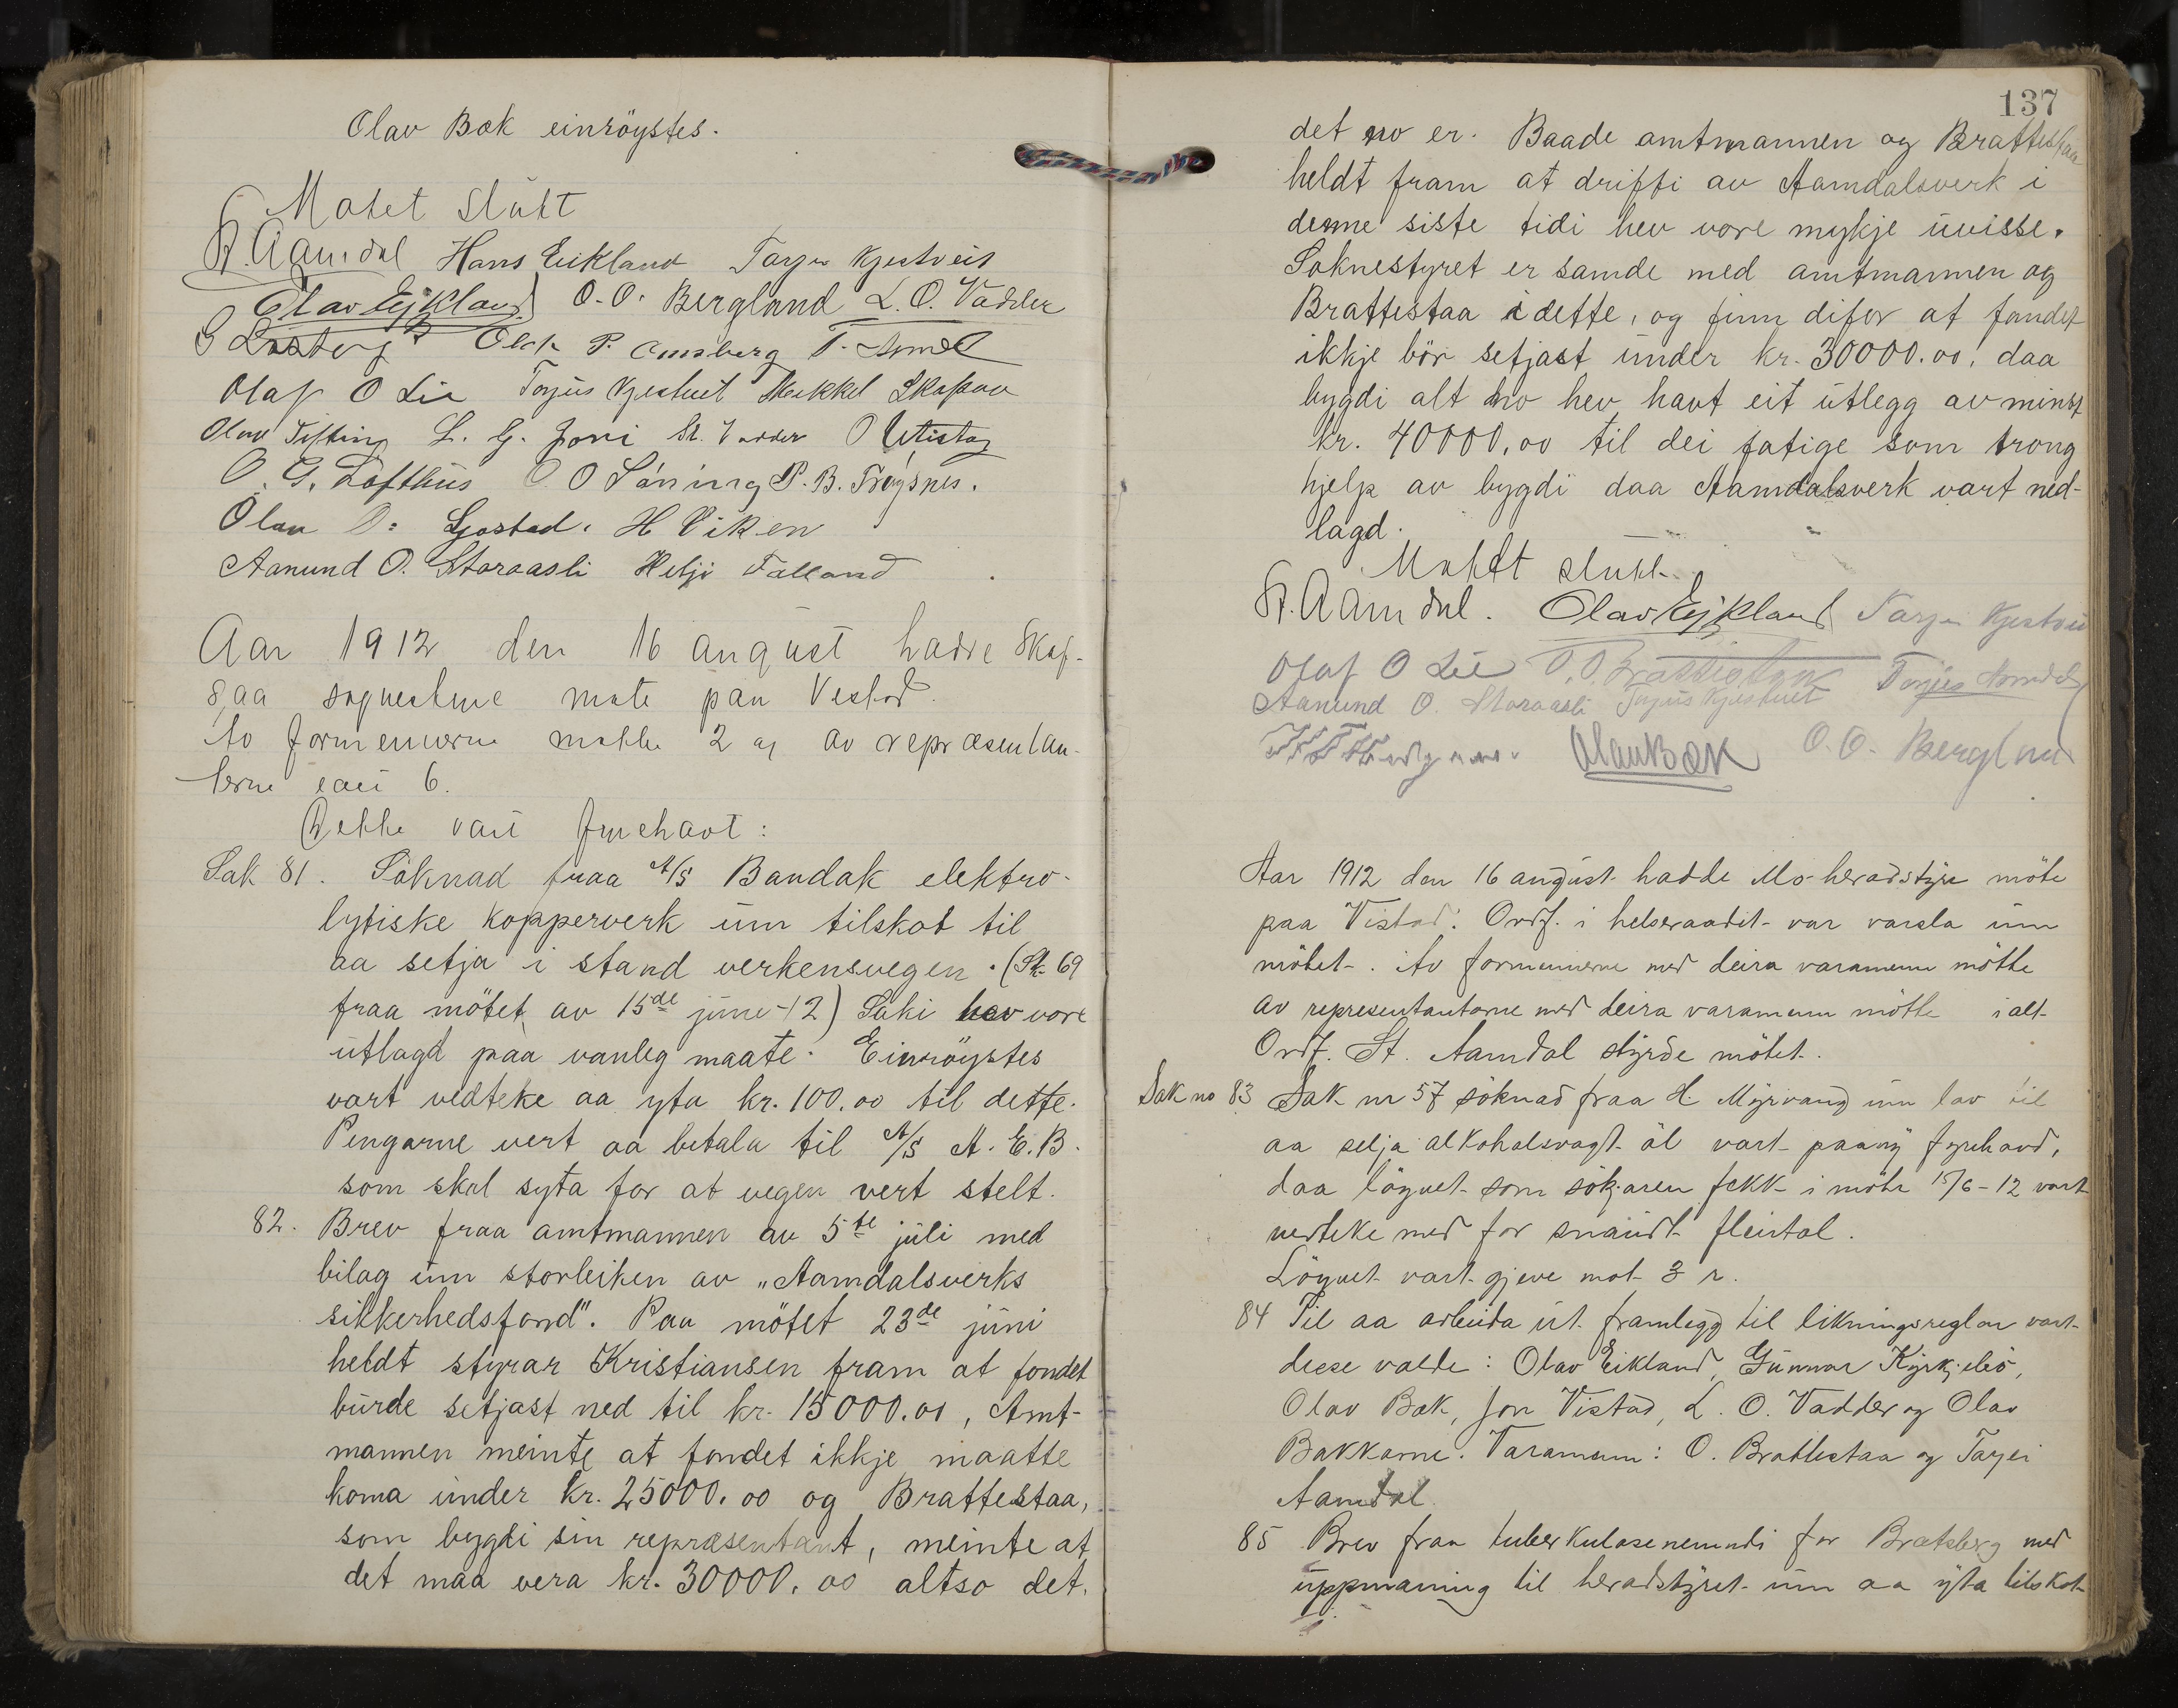 Olav Bæk einröystes.
Møtet slutt
St. Aamdal Hans Eikland Tarjei Kjestveit
Olav Eikland O. O. Bergland L. O. Vadder
Olav P. Omsberg T. Aamdal
Olaf O Lie Torjus Kjestveit Mikkel Skafsaa
Olav Tifting L. G. St. Vadder
O. G. Lofthus O O P. B. Tröysnes.
Olav O. H Viken
Aanund O. Storaasli Helje Falland
Aar 1912 den 16 august hadde Skaf-
saa sognestyre møte paa Vistad.
Av formennerne møtte 2 og av repræsentan-
terne 6.
Dette vart fyrehavt:
Sak 81. Söknad fraa A/S Bandak elektro-
lytiske kopperverk um tilskot til
aa setja i stand verkensvegen. (Sk 69
fraa mötet av 15de june -12) Saki hev vore
utlagd paa vanleg maate. Einröystes
vart vedteke aa yta kr. 100.00 til dette.
Pengarne vert aa betala til A/S A. E. B.
som skal syta for at vegen vert stelt.
82. Brev fraa amtmannen av 5te juli med
bilag um storleiken av „Aamdalsverks
sikkerhedsfond". Paa mötet 23de juni
heldt styrar Kristiansen fram at fondet
burde setjast ned til kr. 15000.00, Amt-
mannen meinte at fondet ikkje maatte
koma under kr. 25000.00 og Brattestaa,
som bygdi sin repræsentant, meinte at
det maa vera kr. 30000.00 altso det.
137
det no er. Baade amtmannen og Brattestaa
heldt fram at drifti av Aamdalsverk i
denne siste tidi hev vore mykje uvisse.
Soknestyret er samde med amtmannen og
Brattestaa i dette, og finn difor at fondet
ikkje bör setjast under kr. 30000.00. daa
bygdi alt no hev havt eit utlegg av minst
kr. 40000.00 til dei fatige som trong
hjelp av bygdi daa Aamdalsverk vart ned-
lagd.
Møtet slutt.
St. Aamdal. Olav Eikland Tarjei Kjestveit
Olaf O Lie O. O. Brattestaa Torjus Aamdal
Aanund O. Storaasli Torjus Kjestveit
Olav Bæk O. O. Bergland
Aar 1912 den 16 august hadde Mo heradstyre möte
paa Vistad. Ordf. i helseraadit var varsla um
mötet. Av formennerne med deira varamenn mötte
av representantarne med deira varamenn mötte ialt
Ordf. St. Aamdal styrde mötet.
Sak no 83 Sak nr 57 söknad fraa H. Myrvang um lov til
aa selja alkoholsvagt öl vart paany fyrehavd,
daa löyvet som sökjaren fekk i möte 15/6-12 vart
vedteke med for snaudt fleirtal.
Löyvet vart gjeve mot 3 r.
84 Til aa arbeida ut framlegg til likningsreglar vart
desse valde: Olav Eikland, Gunnar Kyrkjebö,
Olav Bæk, Jon Vistad, L. O. Vadder og Olav
Bakkarne. Varamenn: O. Brattestaa og Tarjei
Aamdal
85 Brev fraa tuberkulosenemndi for Bratsberg med
uppmaning til heradstyret um aa yta tilskot